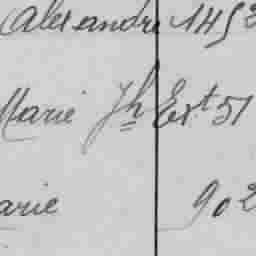 Alexandre 1452
Marie Jh Ext 51
arie 902